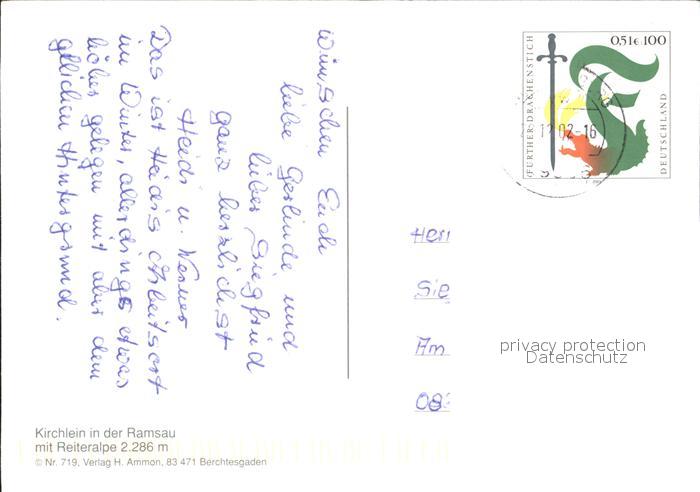 wünschen Euch
liebe Gerlinde und
lieber Siegfried
ganz herzlichst
Heidi u. Werner
Das ist Heidis Arbeitsort
im Winter, allerdings etwas
höher gelegen mit aber dem
gleichen Hintergrund.
Kirchlein in der Ramsau
mit Reiteralpe 2.286 m
© Nr. 719, Verlag H. Ammon, 83 471 Berchtesgaden
FURTHER DRACHENSTICH
0,51€ 100
DEUTSCHLAND
Herr
Sie
Am
08
privacy protection
Datenschutz